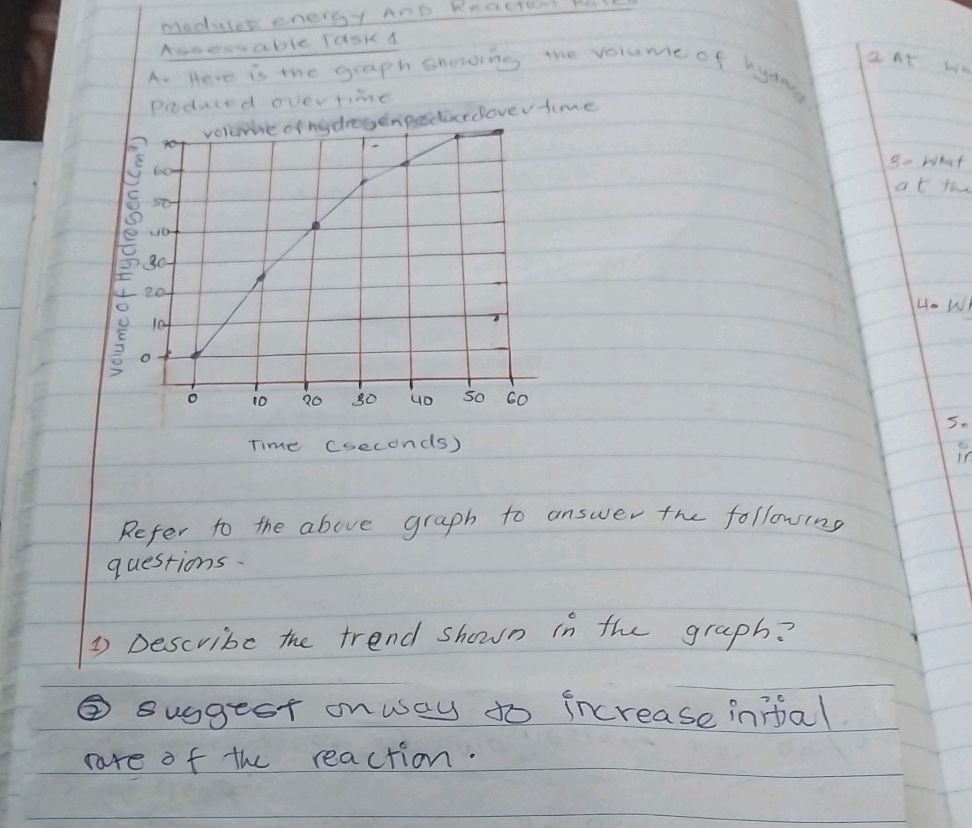 Module 5 energy AND Reaction Rates
Assessable Task 1
A. Here is the graph showing the volume of hydrogen
Produced over time
volume of hydrogen produced over time
Volume of Hydrogen (cm³)
70
60
50
40
30
20
10
0
0 10 20 30 40 50 60
Time (seconds)
Refer to the above graph to answer the following
questions.
1) Describe the trend shown in the graph?
② suggest on way to increase initial
rate of the reaction.
2 At
3. What
at the
4.
5.